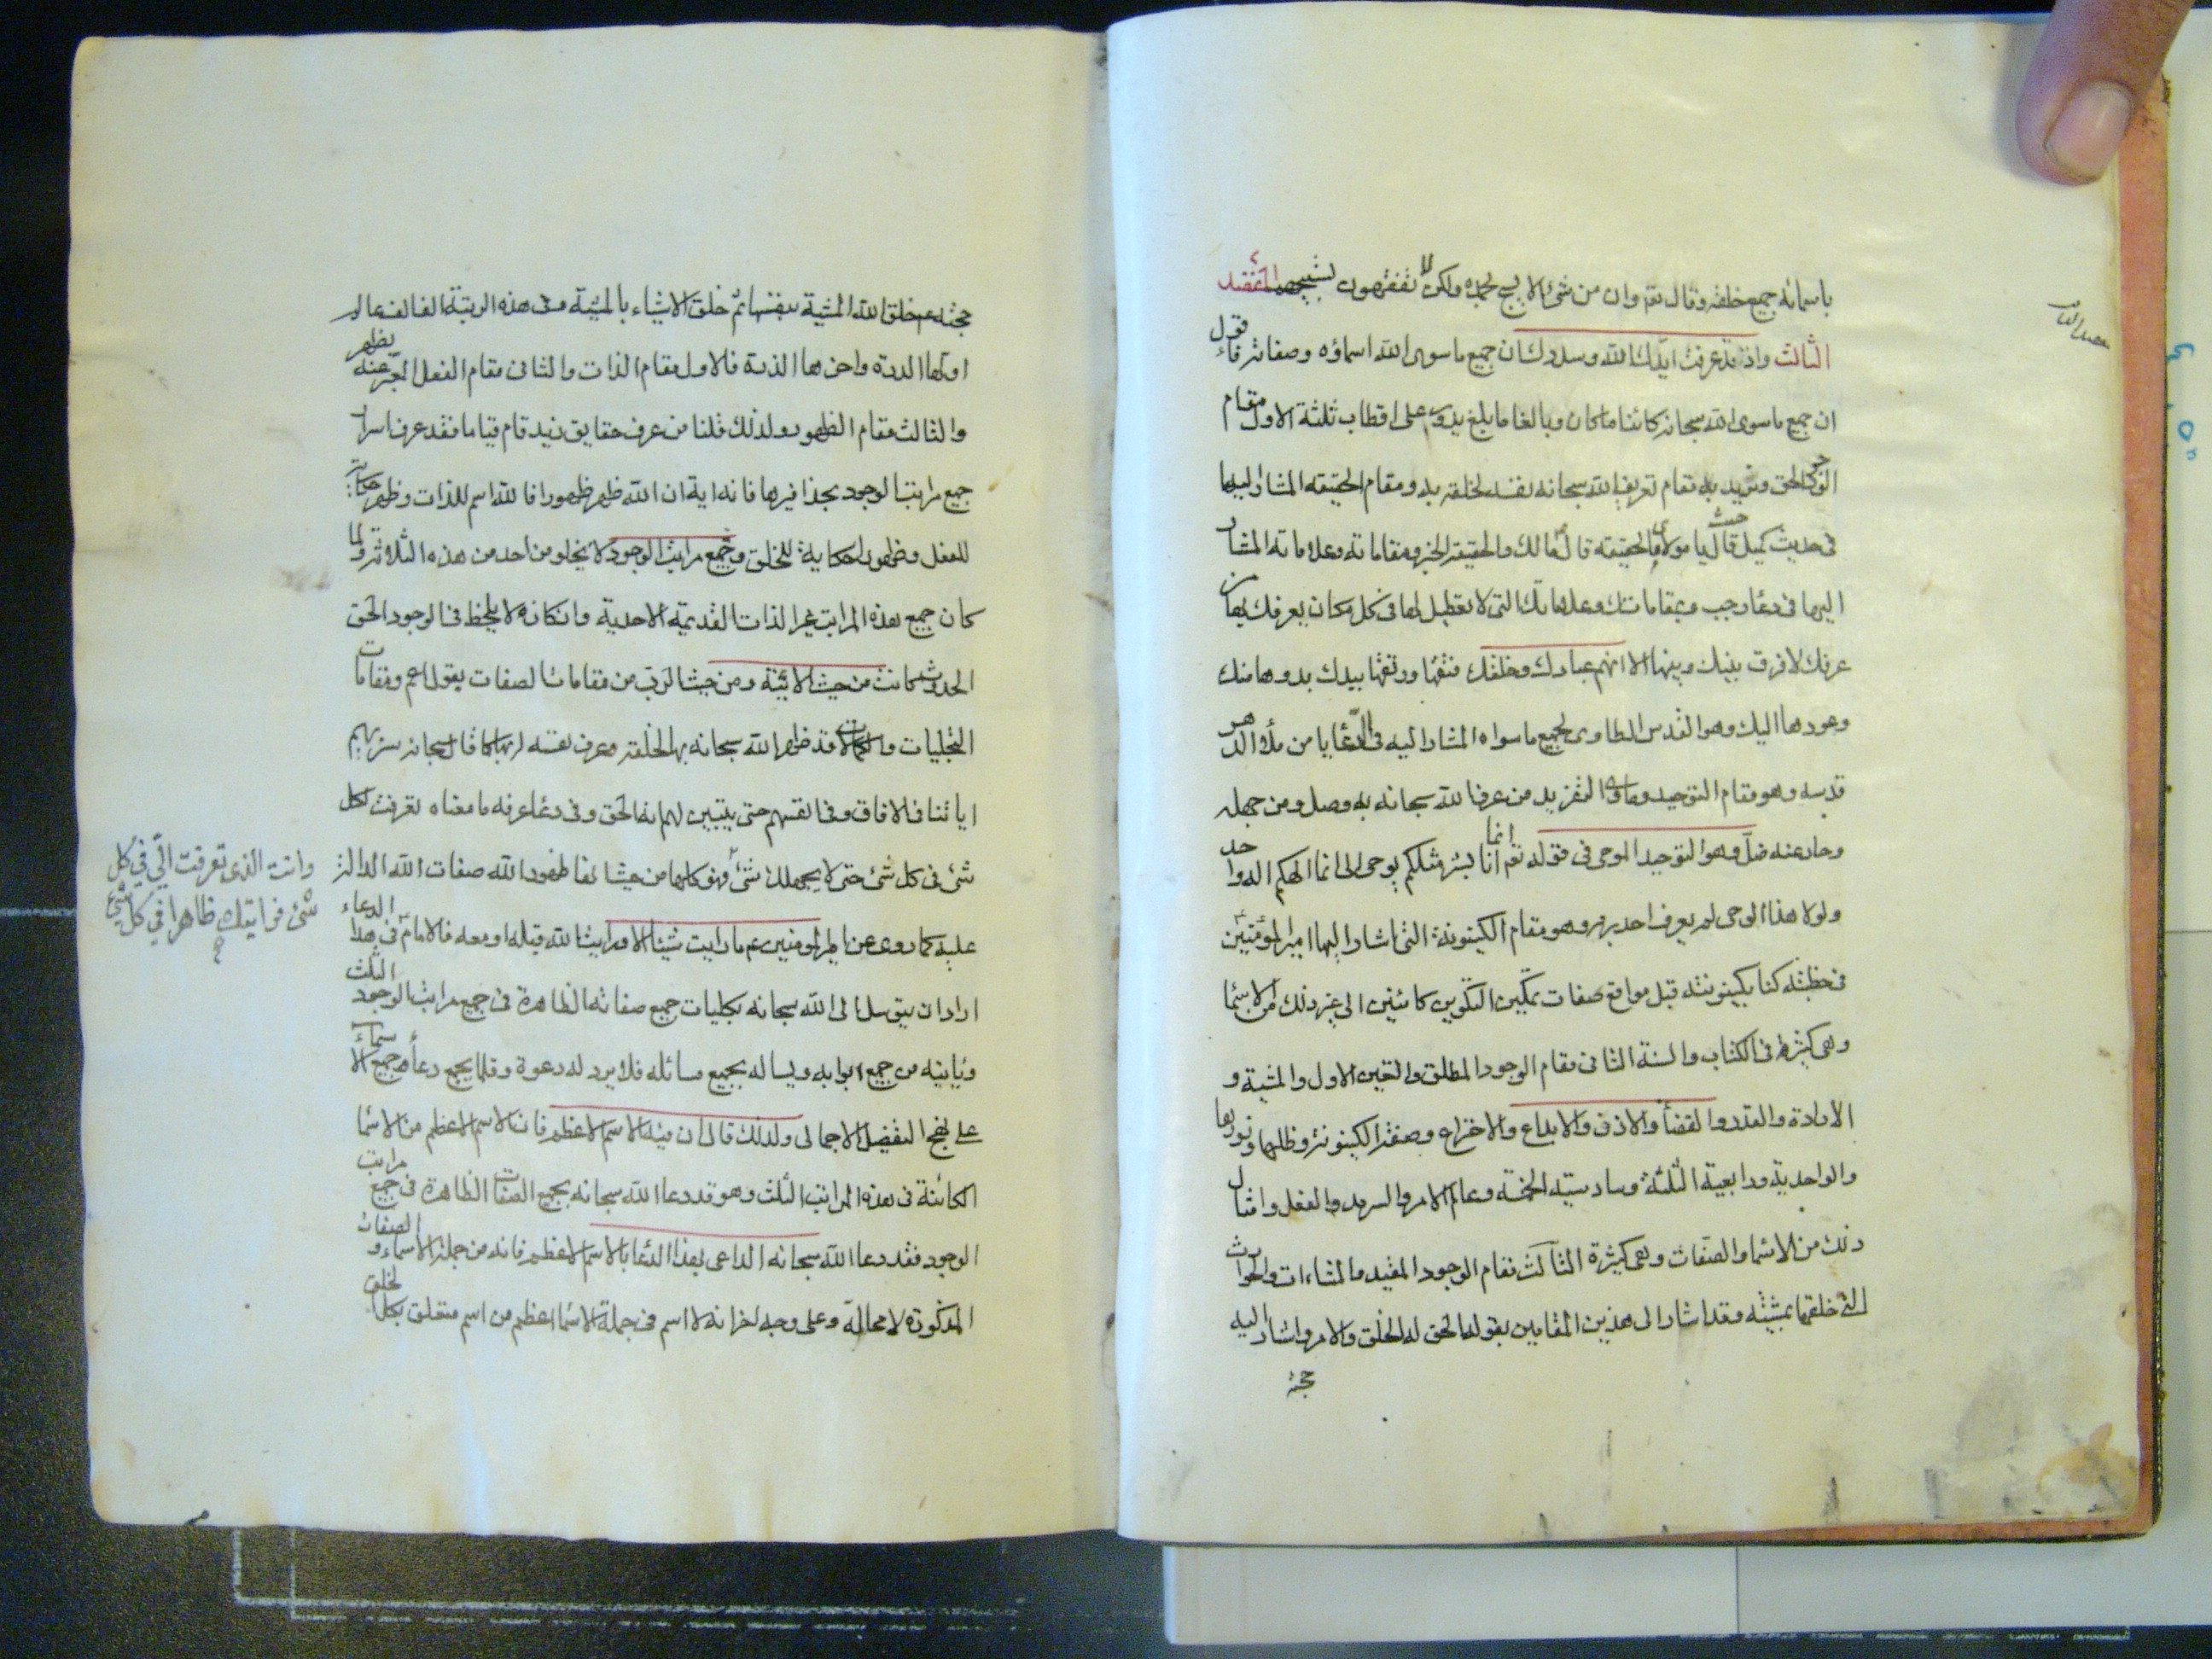 باسمائه جميع خلقه وقال تعم وان من شئ الا يسبح بحمده ولكن لا تفقهون تسبيحهم المقصد
الثالث واذ قد عرفت ايدك الله وسددك ان جميع ما سوى الله اسماؤه وصفاته فاء قول
ان جميع ما سوى الله سبحانه كائنا ما كان وبالغا ما بلغ يدور على اقطاب ثلثة الاول مقام
الوجود الحق ونريد به مقام تعريف الله سبحانه نفسه لخلقه به ومقام الحقيقه المشار اليها
فى حديث كميل حيث قال يا مولاى ما الحقيقه قال مالك والحقيقة الخبر ومقاماته وعلاماته المشار
اليها فى دعاء رجب وبمقاماتك وعلاماتك التى لا تعطيل لها فى كل مكان يعرفك بها من
عرفك لا فرق بينك وبينها الا انهم عبادك وخلقك فتقها ورتقها بيدك بدوها منك
وعودها اليك وهو القدس الطاوى لجميع ما سواه المشار اليه فى الدعا يا من ملأ الدهر
قدسه وهو مقام التوحيد وماوى التفريد من عرف الله سبحانه به وصل ومن جهله
وحاد عنه ضل وهو التوحيد الموحى فى قوله تعم انما انا بشر مثلكم يوحى الى انما الهكم اله واحد
ولولا هذا الوحى لم يعرف احد ربه وهو مقام الكينونة التى اشار اليها امير المؤمنين
فى خطبته كنا بكينونته قبل مواقع صفات تمكين التكوين كائنين الى غير ذلك من الاسما
وهى كثيرة فى الكتاب والسنة الثانى مقام الوجود المطلق والتعين الاول والمشية و
الارادة والقدر والقضأ والاذن والابداع والاختراع وصفة الكينونة وظلها ونورها
والواحدية ورابعية الثلثة وسادسية الخمسة وعالم الامر والسرمد والفعل وامثال
ذلك من الاسما والصفات وهى كثيرة الثالث مقام الوجود المقيد والمشاءات والحوادث
التى خلقها بمشيته وقد اشار الى هذين المقامين بقوله الحق له الخلق والامر واشار اليه
حجته
حجته عم خلق الله المشية بنفسها ثم خلق الاشياء بالمشية وفى هذه الرتبة الف الف عالم
اولها الدرة واخرها الذرة فالاول مقام الذات والثانى مقام الفعل المعبر عنه بظهر
والثالث مقام الظهور ولذلك قلنا من عرف حقايق زيد قام قياما فقد عرف اسرار
جميع مراتب الوجود بحذافيرها فانه اية ان الله ظهر ظهورا فالله اسم للذات وظهر حكاية
للفعل وظهورا حكاية للخلق وجميع مراتب الوجود لا يخلو من احد من هذه الثلاثة ولما
كان جميع هذه المراتب غير الذات القديمة الاحدية وان كان لا يلحظ فى الوجود الحق
الحدوث كانت من حيث الائية ومن حيث الرب من مقامات الصفات بقول اعم ومقامات
التجليات والكمالات قد ظهر الله سبحانه بها لخلقه وعرف نفسه لهم بها كما قال سبحانه سنريهم
اياتنا فى الافاق وفى انفسهم حتى يتبين لهم انه الحق وفى دعاء عرفه ما معناه تعرفت لكل
شئ فى كل شئ حتى لا يجهلك شئ وهو كلها من حيث انها ظهور الله صفات الله الدالة
عليه كما روى عن امير المؤمنين عم ما رايت شيئا الا ورايت الله قبله او معه فالامام فى هذا الدعاء
اراد ان يتوسل الى الله سبحانه بكليات جميع صفاته الظاهرة فى جميع مراتب الوجود الثلث
وياتيه من جميع ابوابه ويساله بجميع مسائله فلا يرد له دعوة وقلما يجمع دعأ جميع الاسماء
على نهج التفضيل الاجمالى ولذلك قال ان فيه الاسم الاعظم فان الاسم الاعظم من الاسما
الكائنة فى هذه المراتب الثلث وهو قد دعا الله سبحانه بجميع الصفات الظاهرة فى جميع مراتب
الوجود فقد دعا الله سبحانه الداعى بهذا الدعا بالاسم الاعظم فانه من جملة الاسماء و الصفات
المذكورة لا محالة وعلى وجه اخر انه لا اسم فى جملة الاسما اعظم من اسم متعلق بكل الخلق
وانت الذى تعرفت الّي في كل
شئ فرايتك ظاهرا في كل شئ